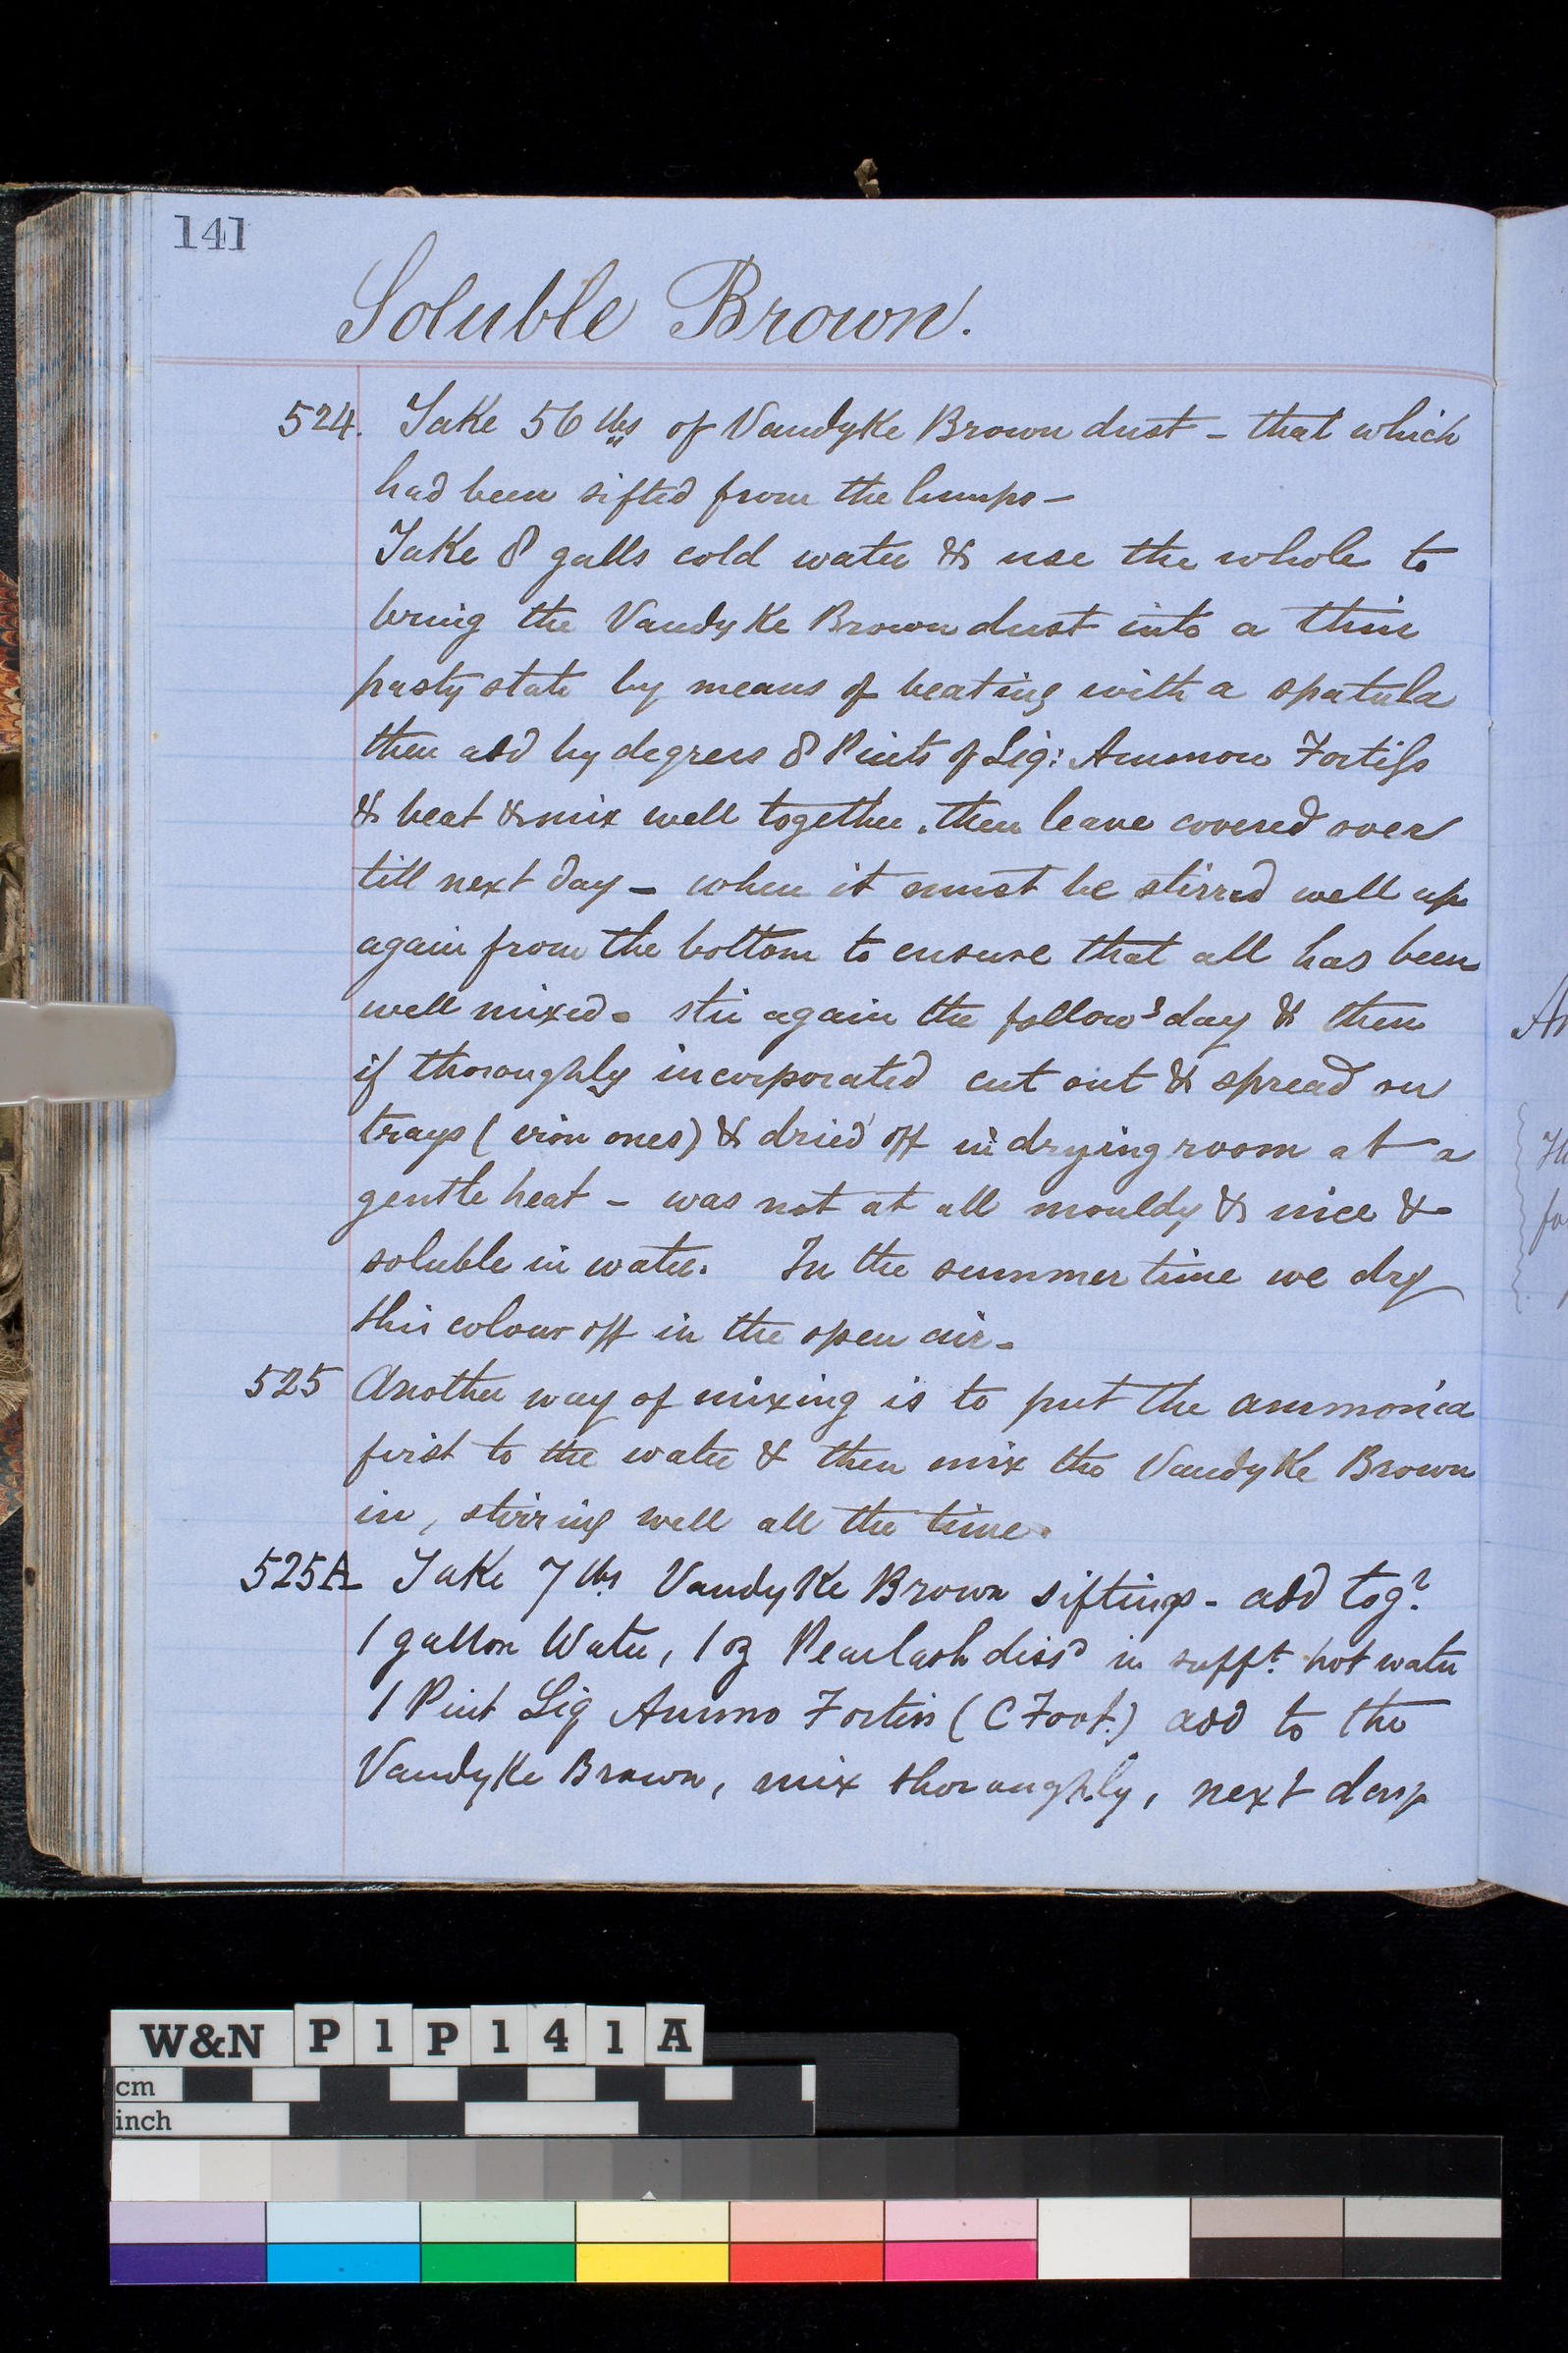 141
Soluble Brown.
524. Take 56 lbs of Vandyke Brown dust – that which
had been sifted from the lumps –
Take 8 galls cold water & use the whole to
bring the Vandyke Brown dust into a thin
pasty state by means of beating with a spatula
then add by degrees 8 Pints of Liq: Ammon Fortiss
& beat & mix well together, then leave covered over
till next day – when it must be stirred well up
again from the bottom to ensure that all has been
well mixed. stir again the follow^g day & then
if thoroughly incorporated cut out & spread on
trays (iron ones) & dried off in drying room at a
gentle heat – was not at all mouldy & nice &
soluble in water. In the summer time we dry
this colour off in the open air.
525 Another way of mixing is to put the ammonia
first to the water & then mix the Vandyke Brown
in, stirring well all the time.
525A Take 7 lbs Vandyke Brown siftings – add tog^r
1 gallon Water, 1 oz Pearlash diss^d in suff^t hot water
1 Pint Liq Ammo Fortiss (C Foot.) add to the
Vandyke Brown, mix thoroughly, next day
W&N P1P141A
cm
inch